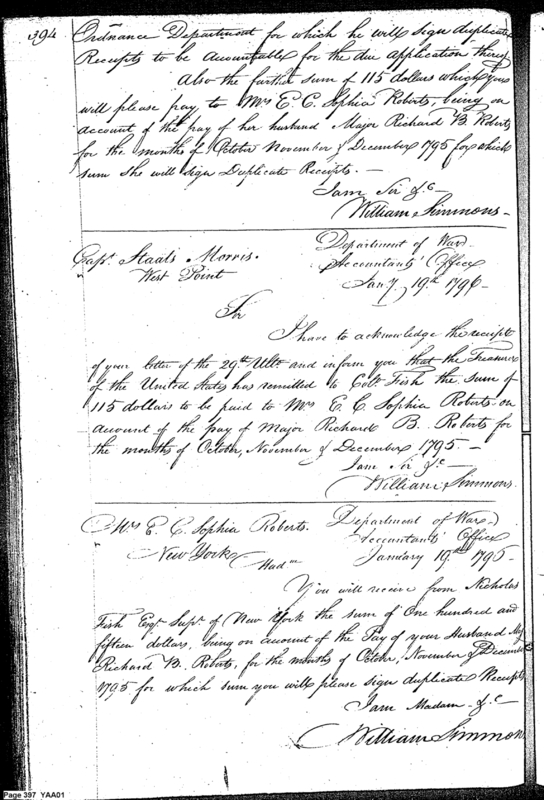 394
Ordnance Department for which he will sign duplicate
Receipts to be accountable for the due application thereof
Also the further sum of 115 dollars which you
will please pay to Mrs E. C. Sophia Roberts, being on
account of the pay of her husband Major Richard B. Roberts
for the months of October November & December 1795 for which
sum she will sign Duplicate Receipts. —
I am Sir &c —
William Simmons —
Capt. Staats Morris.
West Point
Department of War
Accountants' Office
Jany 19th 1796 —
Sir
I have to acknowledge the receipt
of your letter of the 29th Ulto. and inform you that the Treasurer
of the United States has remitted to Colo. Fish the sum of
115 dollars to be paid to Mrs E. C. Sophia Roberts on
account of the pay of Major Richard B. Roberts for
the months of October, November & December 1795. —
I am Sir &c —
William Simmons.
Mrs E. C. Sophia Roberts.
New York
Department of War
Accountants' Office
January 19th 1796 —
Madm
You will receive from Nicholas
Fish Esqr. Supr. of New York the sum of One hundred and
fifteen dollars, being on account of the Pay of your Husband Maj
Richard B. Roberts, for the months of October, November & December
1795 for which sum you will please sign duplicate Receipts
I am Madam &c —
William Simmon
Page 397 YAA01